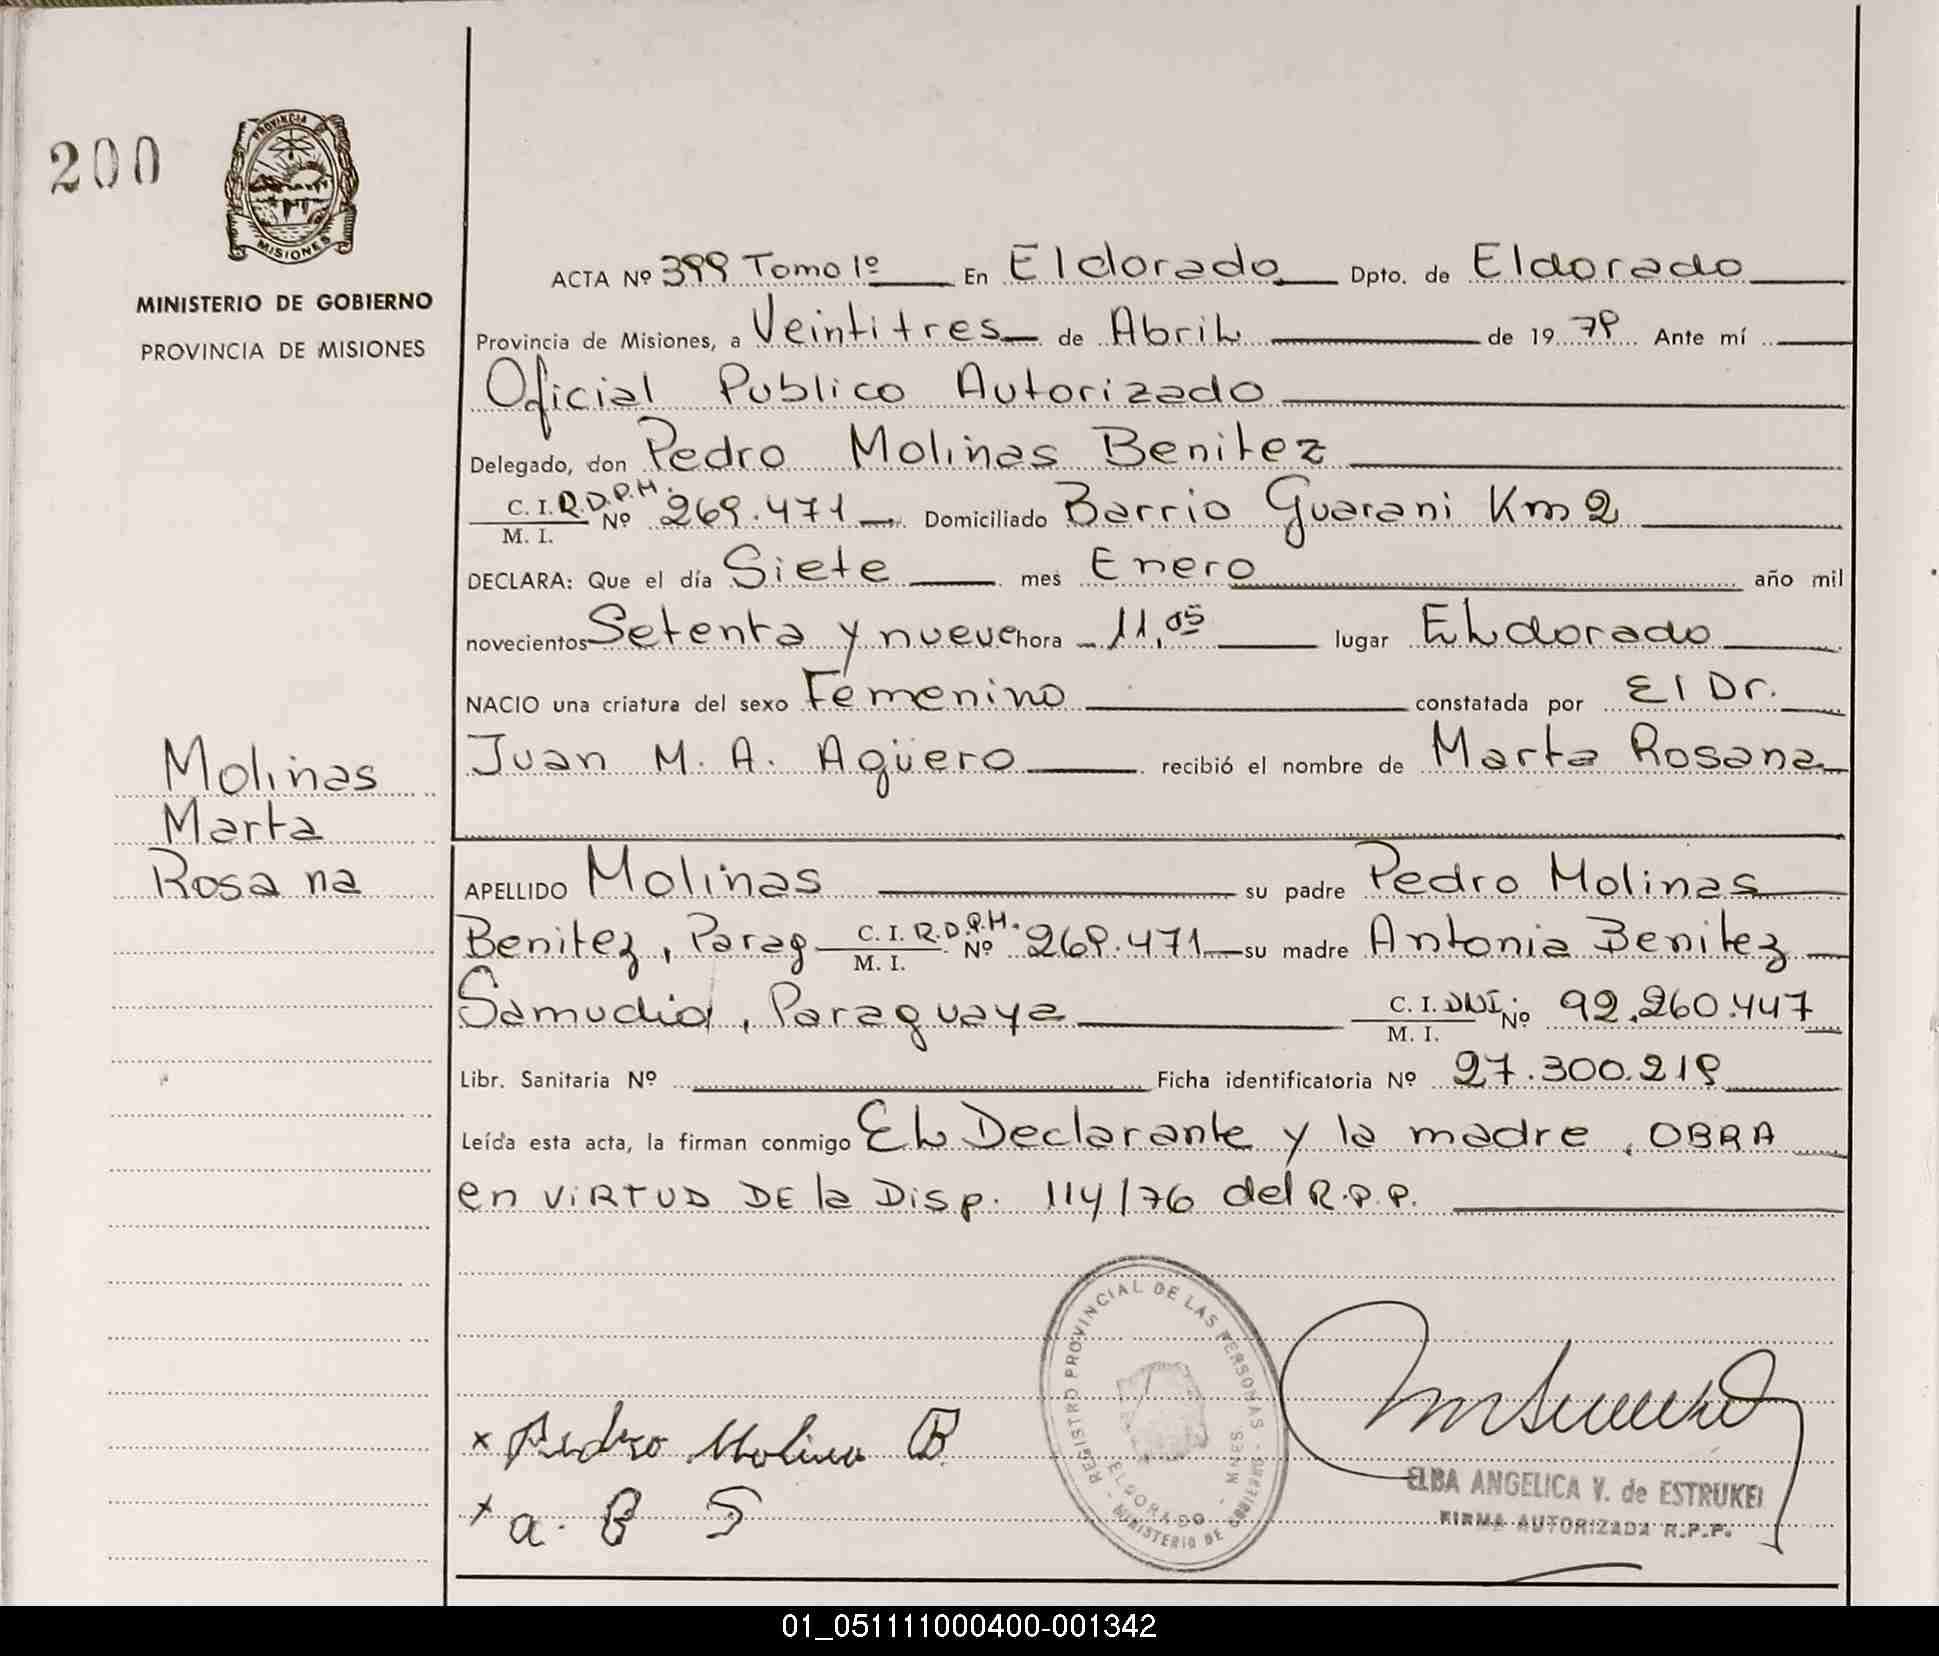 200
PROVINCIA
MISIONES
MINISTERIO DE GOBIERNO
PROVINCIA DE MISIONES
Molinas
Marta
Rosana
ACTA Nº 399 Tomo 1º En Eldorado Dpto. de Eldorado
Provincia de Misiones, a Veintitres de Abril de 19 79 Ante mí
Oficial Publico Autorizado
Delegado, don Pedro Molinas Benitez
C. I. R.D.P.M. Nº 269.471 Domiciliado Barrio Guarani Km 2
M. I.
DECLARA: Que el día Siete mes Enero año mil
novecientos Setenta y nueve hora 11,05 lugar ELdorado
NACIO una criatura del sexo Femenino constatada por El Dr.
Juan M. A. Agüero recibió el nombre de Marta Rosana
APELLIDO Molinas su padre Pedro Molinas
Benitez, Parag C. I. R.D.P.M. Nº 269.471 su madre Antonia Benitez
M. I.
Samudio, Paraguaya C. I. DNI. Nº 92.260.447
M. I.
Libr. Sanitaria Nº Ficha identificatoria Nº 27.300.219
Leída esta acta, la firman conmigo EL Declarante y la madre, OBRA
en VIRTUD DE la Disp. 114/76 del R.P.P.
REGISTRO PROVINCIAL DE LAS PERSONAS
ELDORADO - MNES.
MINISTERIO DE GOBIERNO
x Pedro Molina B
x a. B S
ELBA ANGELICA V. de ESTRUKEL
FIRMA AUTORIZADA R.P.P.
01_051111000400-001342